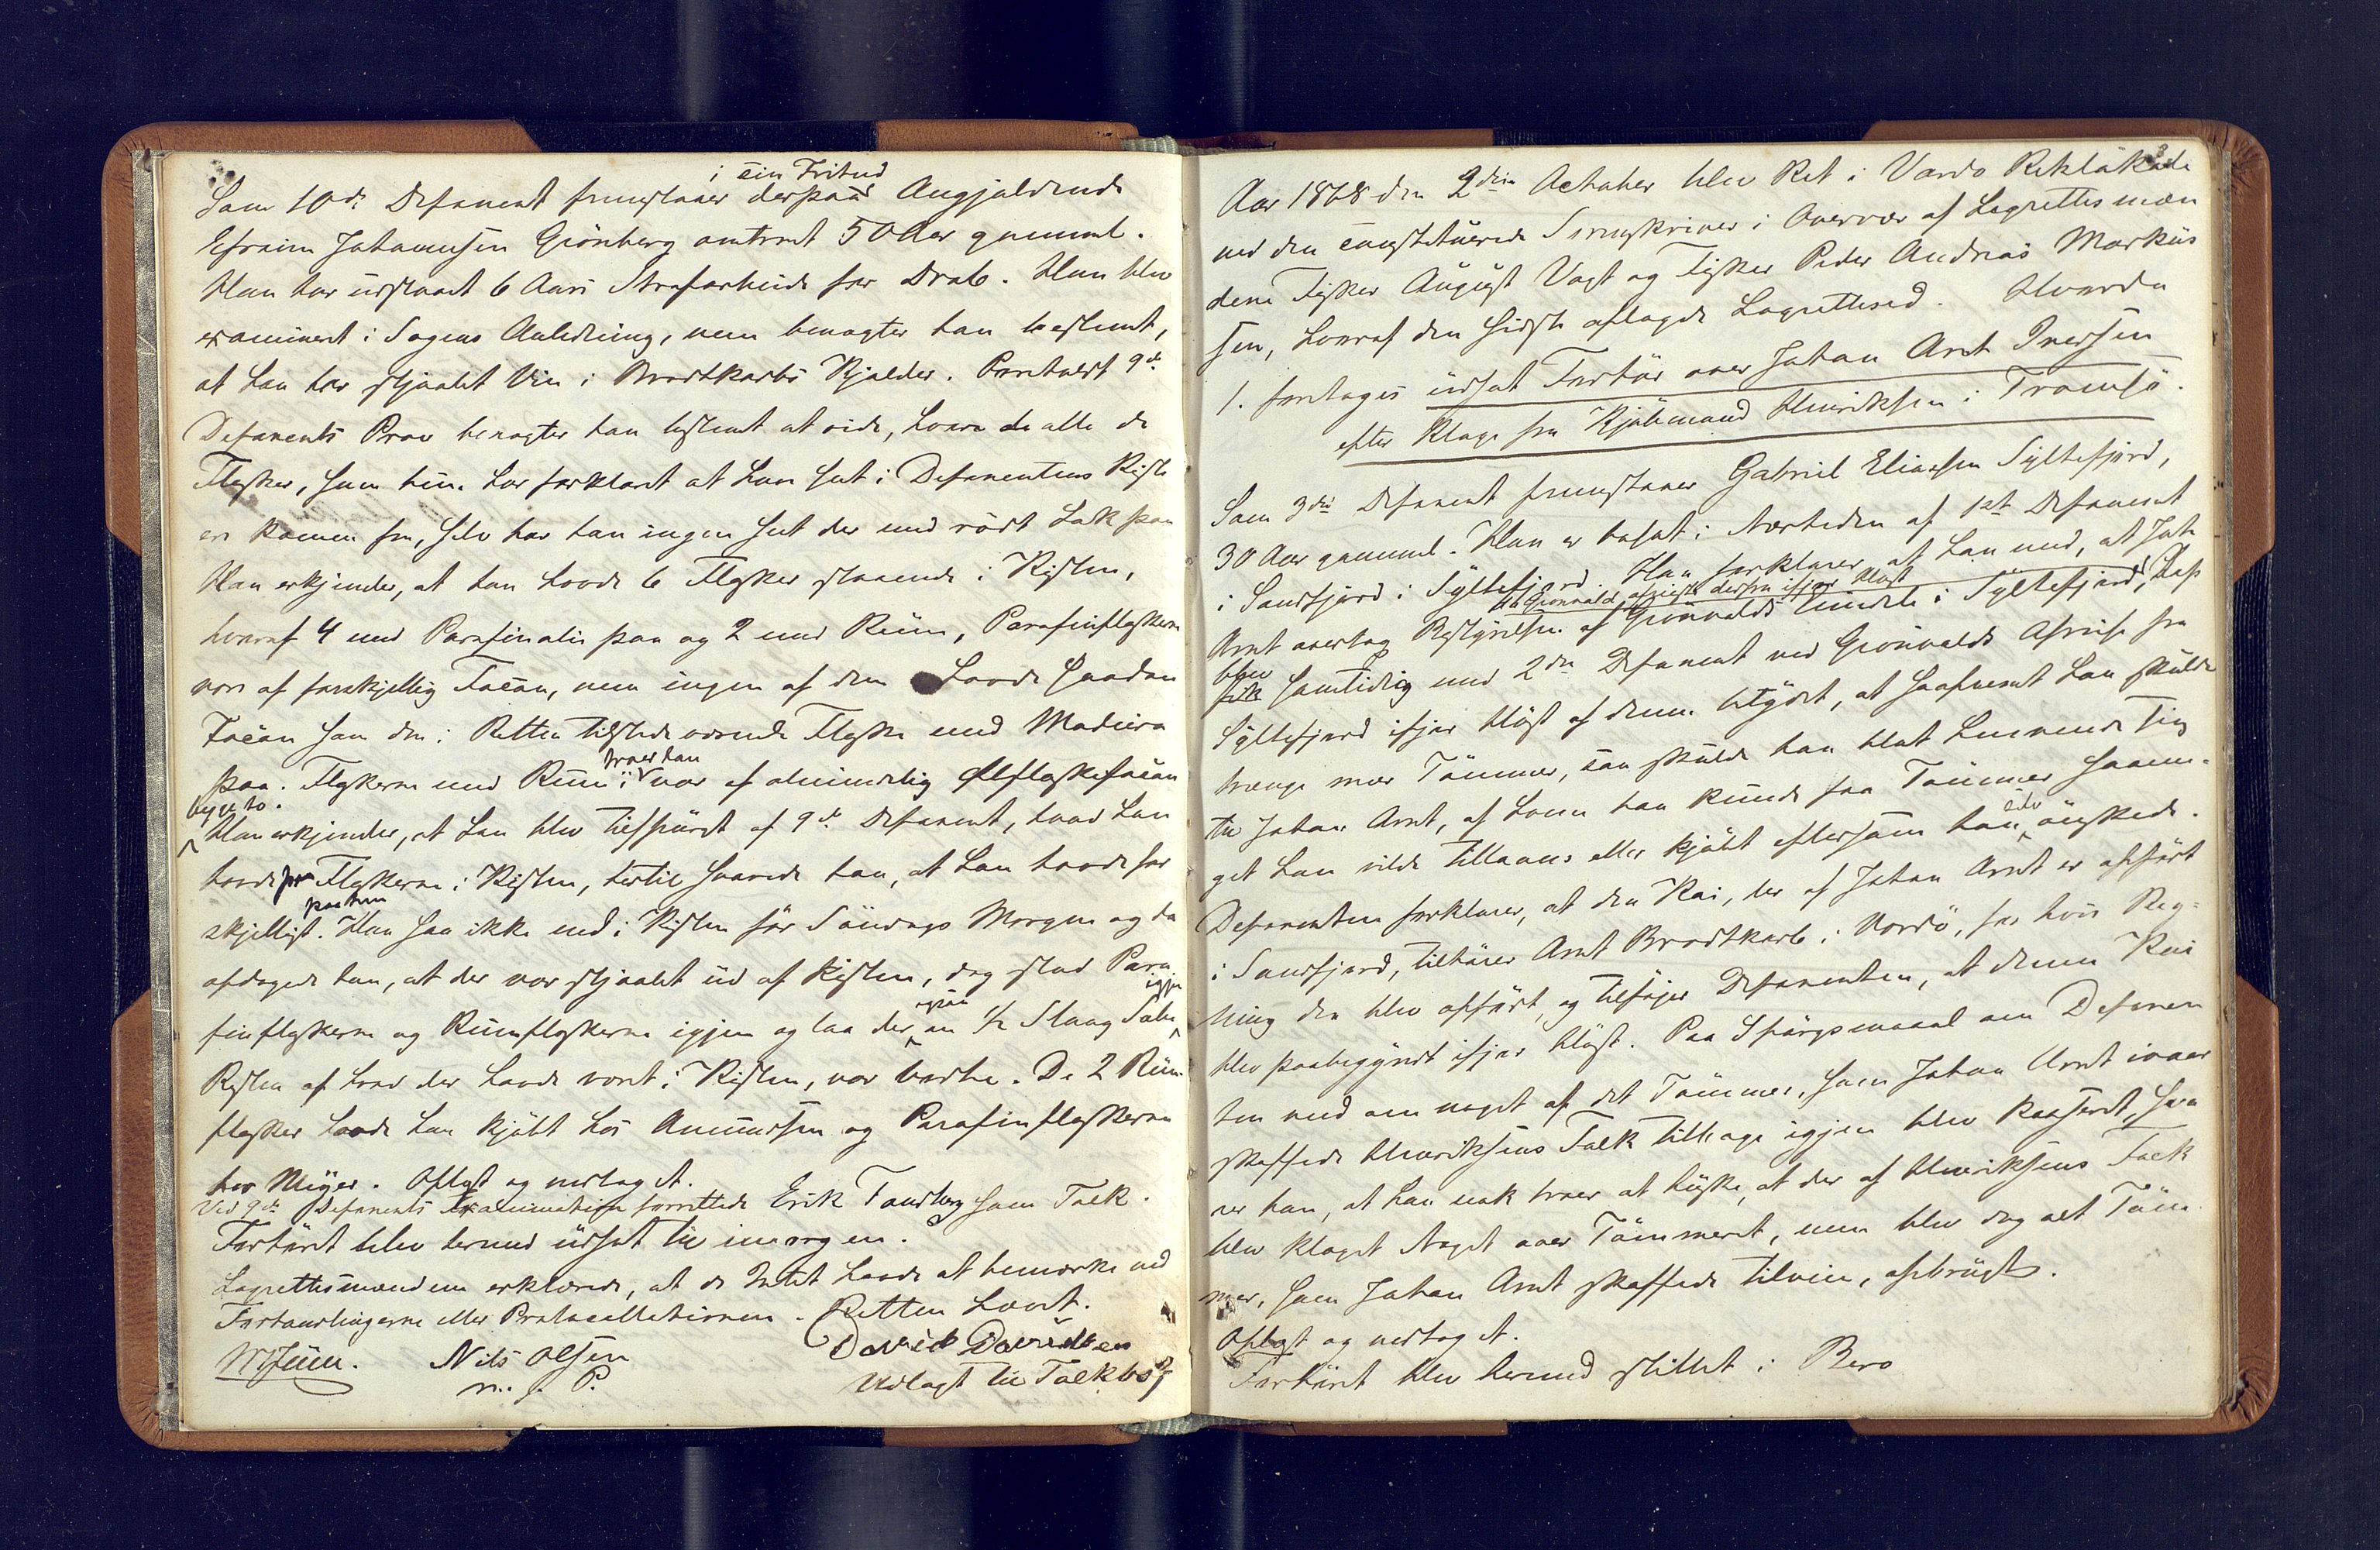 i sin Fritid
Som 10de Deponent fremstaaer derpaa Angjældende
Efraim Johannesen Grönberg omtrent 50 Aar gammel.
Han har udstaaet 6 Aars Strafarbeide for Drab. Han blev
examineret i Sagens Anledning, men benægter han bestemt,
at han har stjaalet Vin i Brodtkorbs Kjælder. Foreholdt 9de
Deponents Prov benægter han bestemt at vide, hvorfra alle de
Flasker, som hun har forklaret at have seet i Deponentens Kiste
ere komne fra, selv har han ingen seet der med rödt Lak paa
Han erkjender, at han havde 6 Flasker staaende i Kisten,
hvoraf 4 med Parafinolie paa og 2 med Rum, Parafinflaskerne
vare af forskjellig Facon, men ingen af dem havde saadan
Facon som den i Retten tilstedeværende Flaske med Madeira
paa. Flaskerne med Rum i troer han var af almindelig Ølflaskefacon
begge to.
Han erkjender, at han blev tilspurgt af 9de Deponent, hvad han
havde paa Flaskerne i Kisten, hertil svarede han, at han havde for
skjelligt paa dem. Han saa ikke ned i Kisten för Söndags Morgen og da
opdagede han, at der var stjaalet ud af Kisten, dog stod Para
finflaskerne og Rumflaskerne igjen og laa der ogsaa en 1/2 Stang Sæbe igjen
Resten af hvad der havde været i Kisten, var borte. De 2 Rum
flasker havde han kjöbt hos Amundsen og Parafinflaskerne
hos Meyer. Oplæst og vedtaget.
Ved 9de Deponents Examination forrettede Erik Tandberg som Tolk.
Forhöret blev hermed udsat til imorgen.
Lagrettesmændene erklærede, at de Intet havde at bemærke ved
Forhandlingerne eller Protocollationen. Retten hævet.
Nils Olsen
David Davidsen
m. f. P.
Aar 1868 den 2den October blev Ret i Vardö Retslokale
ved den constituerede Sorenskriver i Overvær af Lagrettesmæn
dene Fisker August Vogt og Fisker Peder Andreas Markus
sen, hvoraf den sidste aflagde Lagretteed. Hvorda
1. foretages udsat Forhör over Johan Arnt Iversen
efter Klage fra Kjöbmand Henriksen i Tromsö.
Som 3die Deponent fremstaaer Gabriel Eliassen Syltefjord,
30 Aar gammel. Han er bosat i Nærheden af 1ste Deponent
i Sandfjord i Syltefjord. Han forklarer at han med, at Joh
da Grönvold afreiste derfra ifjor Höst
Arnt overtog Bestyrelsen af Grönvolds Eiendele i Syltefjord, Dep
blev
fik samtidig med 2den Deponent ved Grönvolds Afreise fra
Syltefjord ifjor Höst af denne betydet, at saafremt han skulde
trænge mer Tömmer, saa skulde han blot henvende sig
til Johan Arnt, af hvem han kunde faa Tömmer saame-
get han vilde tillaans eller kjöbt eftersom han selv önskede.
Deponenten forklarer, at den Kai, der af Johan Arnt er opfört
i Sandfjord, tilhörer Arnt Brodtkorb i Vardö, for hvis Reg-
ning den blev opfört, og tilföier Deponenten, at denne Kai
blev paabegyndt ifjor Höst. Paa Spörgsmaal om Deponen
ten ved om noget af det Tömmer, som Johan Arnt ivaar
skaffede Henriksens Folk tilbage igjen blev kasseret, sva
rer han, at han nok troer at huske, at der af Henriksens Folk
blev klaget Noget over Tömmeret, men blev dog alt Töm
mer, som Johan Arnt skaffede tilveie, opbrugt.
Oplæst og vedtaget.
Forhöret blev hermed stillet i Bero